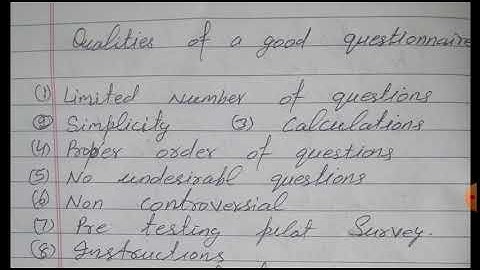 Qualities of a good questionnaire
(1) Limited Number of questions
(2) Simplicity (3) Calculations
(4) Proper order of questions
(5) No undesirabl questions
(6) Non controversial
(7) Pre testing pilot Survey.
(8) Instructions